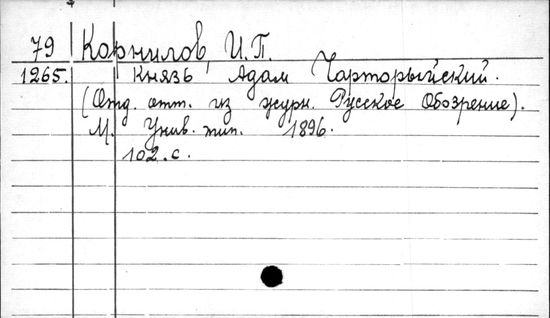 79 Корнилов, И.П.
1265. Князь Адам Чарторыйский.
(Отд. отт. из журн. Русское Обозрение).
М. Унив. тип. 1896.
102. с.